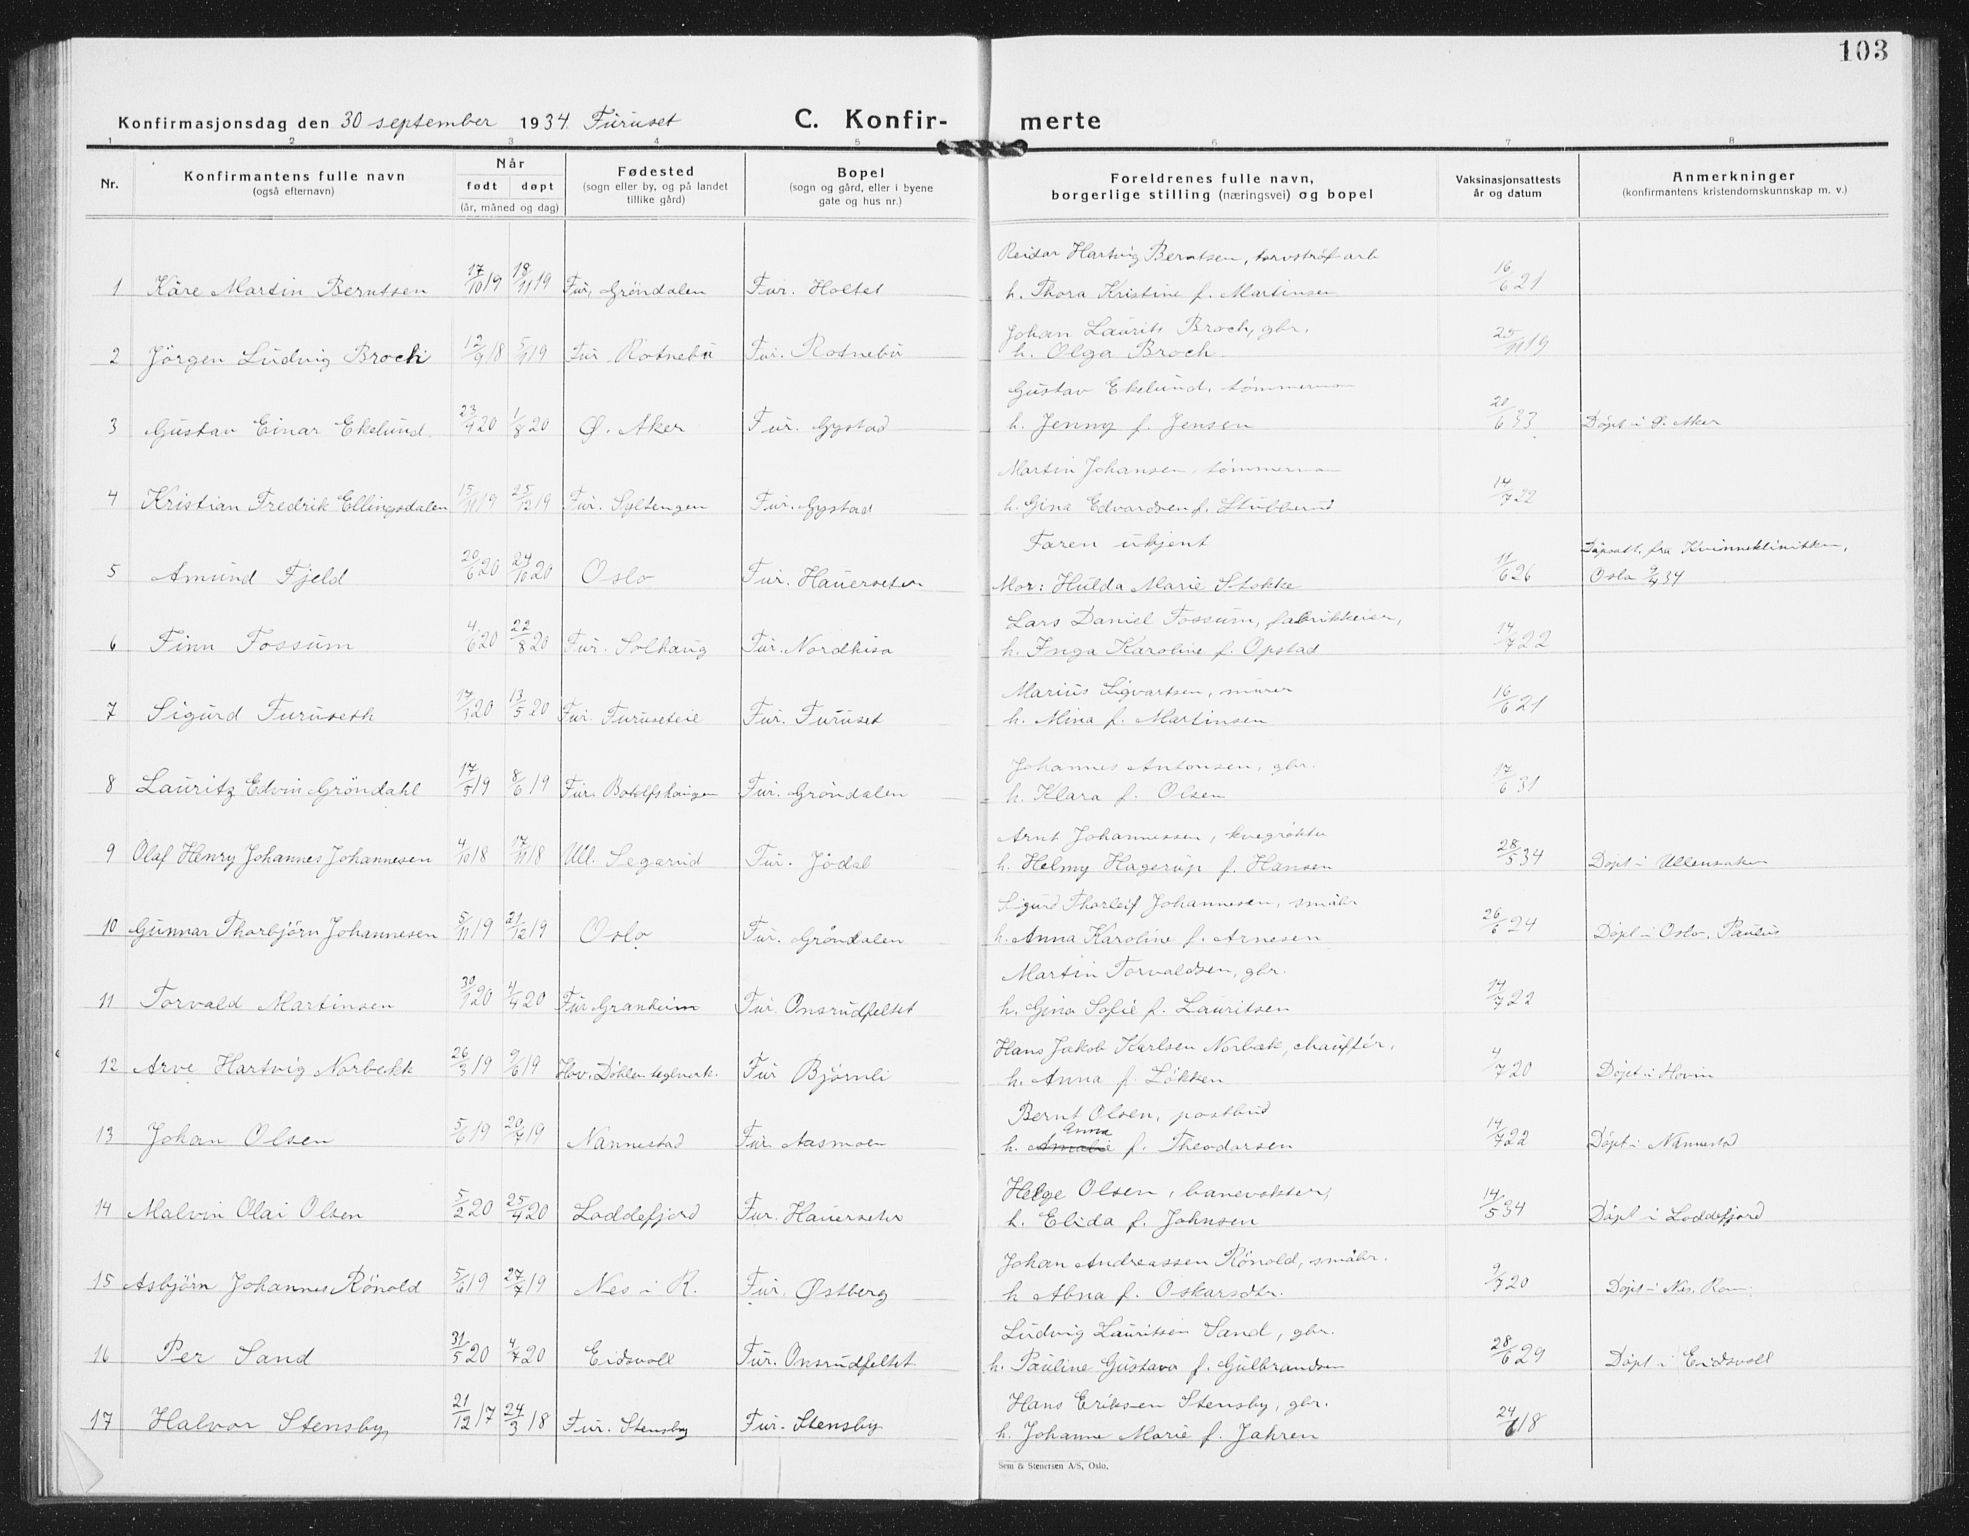 103
Konfirmasjonsdag den 30 september 1934 Furuset C. Konfir- merte
1 2 3 4 5 6 7 8
Nr. Konfirmantens fulle navn (også efternavn) Når født døpt (år, måned og dag) Fødested (sogn eller by, og på landet tillike gård) Bopel (sogn og gård, eller i byene gate og hus nr.) Foreldrenes fulle navn, borgerlige stilling (næringsvei) og bopel Vaksinasjonsattests år og datum Anmerkninger (konfirmantens kristendomskunnskap m. v.)
Reidar Hartvig Berntsen, torvströf.arb
1 Kåre Martin Berntsen 17/10 19 18/11 19 Fur. Gröndalen Fur. Holtet h. Thora Kristine f. Martinsen 16/6 21
Johan Laurits Broch, gbr.
2 Jörgen Ludvig Broch 12/9 18 5/1 19 Fur Rotnebu Fur. Rotnebu h. Olga Broch 25/11 19
Gustav Ekelund, tømmerman
3 Gustav Einar Ekelund 23/4 20 1/8 20 Ø. Aker Fur. Gystad h. Jenny f. Jensen 20/6 33 Døpt i Ø. Aker
Martin Johansen, tømmerman
4 Kristian Fredrik Ellingsdalen 15/11 19 25/12 19 Fur. Syltengen Fur. Gystad h. Gina Edvardsen f. Stubberud 14/7 22
Faren ukjent Døpsatt. fra Kvinneklinikken,
5 Amund Fjeld 20/6 20 24/10 20 Oslo Fur. Hauerseter Mor: Hulda Marie Stokke 11/6 26 Oslo 34
Lars Daniel Fossum, fabrikkeier,
6 Finn Fossum 4/6 20 22/8 20 Fur. Solhaug Fur. Nordkisa h. Inga Karoline f. Opstad 14/7 22
Marius Sigvartsen, murer
7 Sigurd Furuseth 17/3 20 13/5 20 Fur. Furuseteie Fur. Furuset h. Mina f. Martinsen 16/6 21
Johannes Antonsen, gbr.
8 Lauritz Edvin Gröndahl 17/5 19 8/6 19 Fur. Botolfshaugen Fur. Gröndalen h. Klara f. Olsen 17/6 31
Arnt Johannessen, kvegrøkter
9 Olaf Henry Johannes Johannesen 4/10 18 17/11 18 Ull. Segarud Fur. Jödal h. Helmy Hagerup f. Hansen 28/5 34 Døpt i Ullensaker
Sigurd Thorleif Johannesen, småbr
10 Gunnar Thorbjörn Johannesen 5/11 19 21/12 19 Oslo Fur. Gröndalen h. Anna Karoline f. Arnesen 26/6 24 Døpt i Oslo, Paulus
Martin Torvaldsen, gbr.
11 Torvald Martinsen 30/1 20 4/4 20 Fur. Granheim Fur. Onsrudfeltet h. Gina Sofie f. Lauritsen 14/7 22
Hans Jakob Karlsen Norbæk, chauffør,
12 Arve Hartvig Norbekk 26/3 19 9/6 19 Hov. Döhlen teglverk. Fur Bjørnli h. Anna f. Løkken 4/7 20 Døpt i Hovin
Bernt Olsen, postbud
Anna
13 Johan Olsen 5/6 19 20/7 19 Nannestad Fur. Aasmoen h. Amalie f. Theodorsen 14/7 22 Døpt i Nannestad
Helge Olsen, banevokter,
14 Malvin Olai Olsen 5/2 20 25/4 20 Loddefjord Fur. Hauerseter h. Elida f. Johnsen 14/5 34 Døpt i Loddefjord
Johan Andreassen Rönold, småbr.
15 Asbjörn Johannes Rönold 5/6 19 27/7 19 Nes i R. Fur. Østberg h Abna f. Oskarsdtr. 20 Døpt i Nes, Rom.
Ludvig Lauritsen Sand, gbr.
16 Per Sand 31/5 20 4/7 20 Eidsvoll Fur. Onsrudfeltet h. Pauline Gustava f. Gulbrandsen 28/6 29 Døpt i Eidsvoll
Hans Eriksen Stensby, gbr.
17 Halvor Stensby 21/12 17 24/3 18 Fur. Stensby Fur. Stensby h. Johanne Marie f. Jahren 24/6 18
Sem & Stenersen A/S, Oslo.